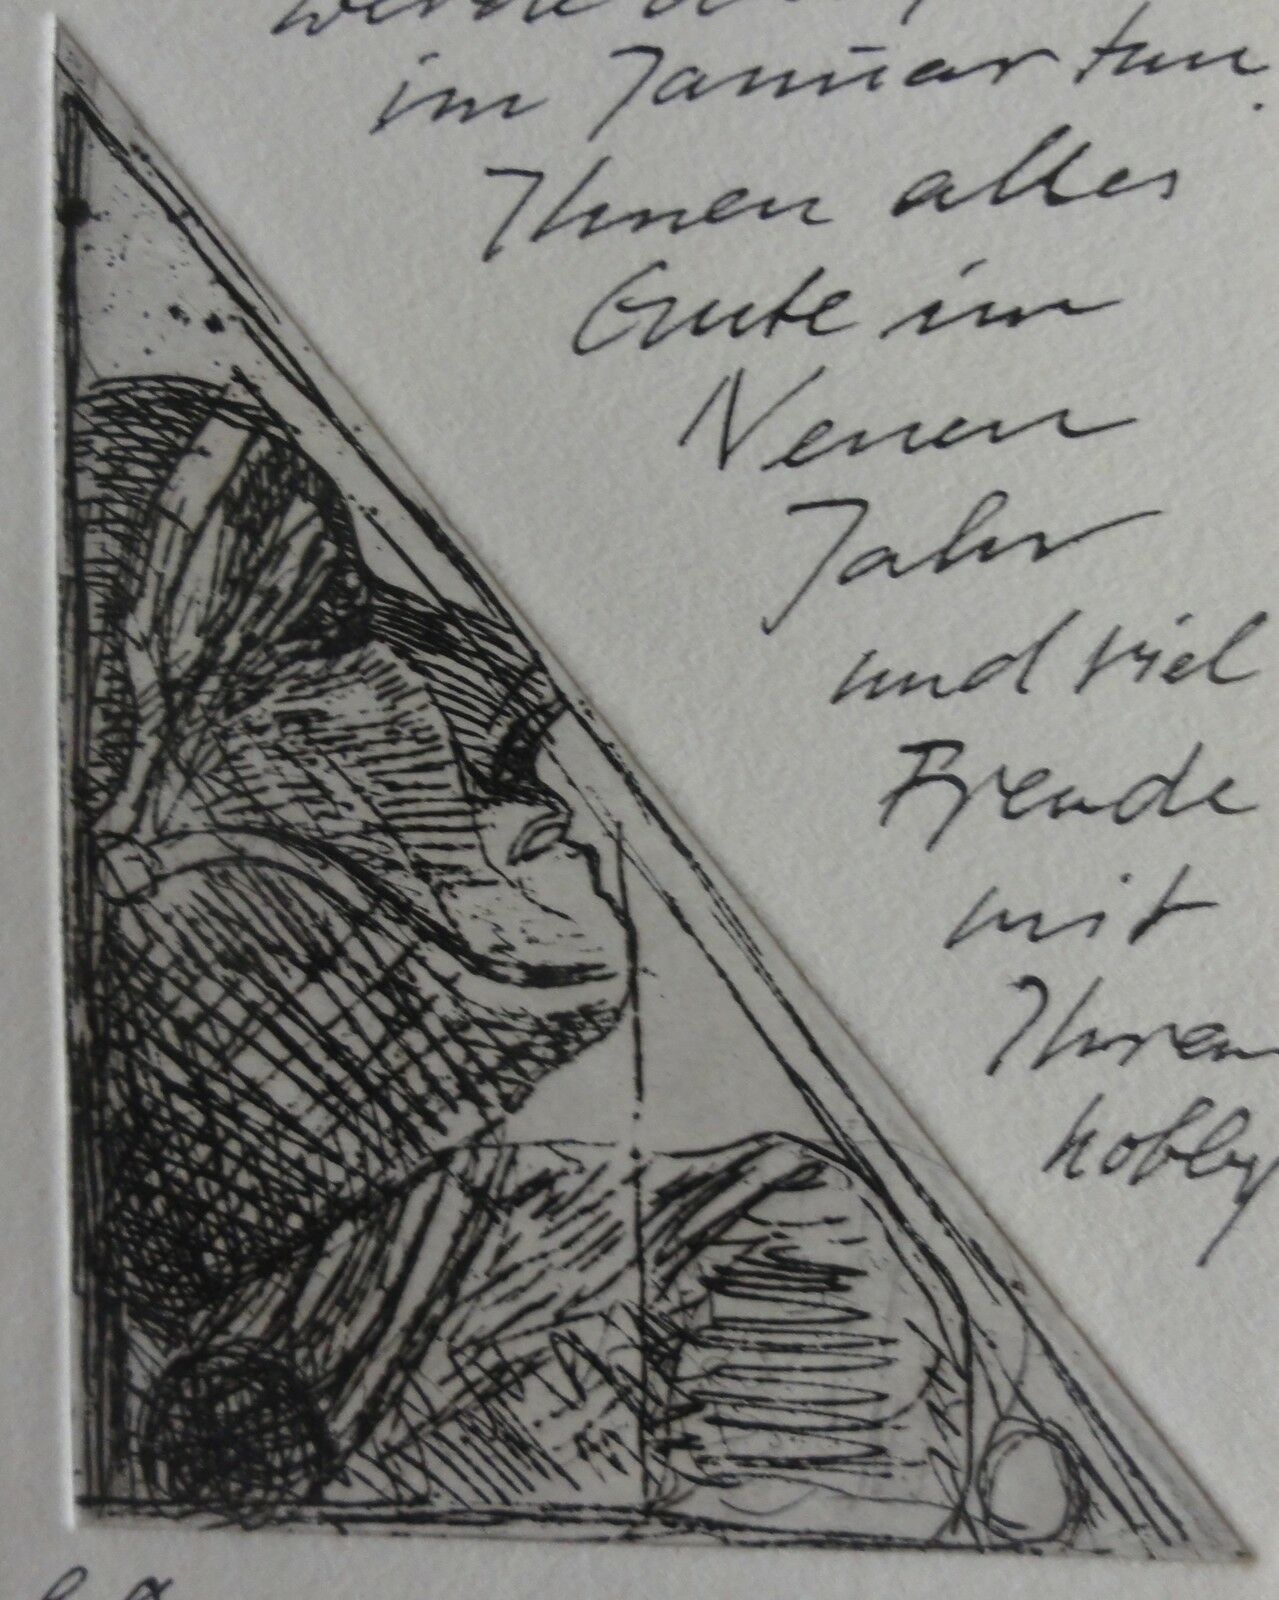 im Januar tun.
Ihnen alles
Gute im
Neuen
Jahr
und viel
Freude
mit
Ihrem
hobby